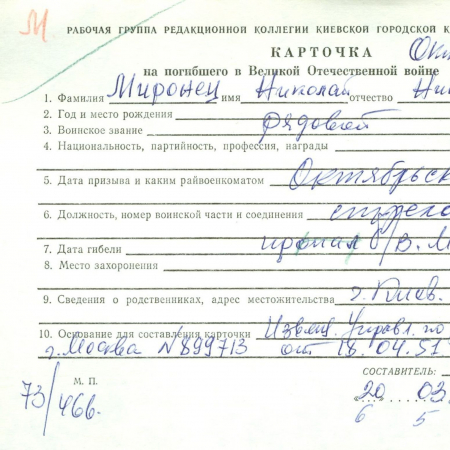 М
РАБОЧАЯ ГРУППА РЕДАКЦИОННОЙ КОЛЛЕГИИ КИЕВСКОЙ ГОРОДСКОЙ К
КАРТОЧКА Окт
на погибшего в Великой Отечественной войне
1. Фамилия Миронец имя Николай отчество Ни
2. Год и место рождения
3. Воинское звание рядовой
4. Национальность, партийность, профессия, награды
5. Дата призыва и каким райвоенкоматом Октябрьск
6. Должность, номер воинской части и соединения стрелко
7. Дата гибели б/в. м
8. Место захоронения
9. Сведения о родственниках, адрес местожительства г. Киев.
10. Основание для составления карточки Извещ. Управл. по
г. Москва N 899713 от 18.04.51
М. П.
СОСТАВИТЕЛЬ:
73/466.
"20" 03.
6 5